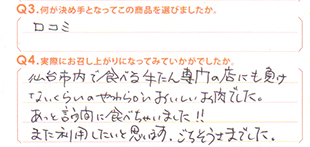 Q3.何が決め手となってこの商品を選びましたか。
口コミ
Q4.実際にお召し上がりになってみていかがでしたか。
仙台市内で食べる牛たん専門の店にも負け
ないくらいのやわらかいおいしいお肉でした。
あっと言う間に食べちゃいました!!
また利用したいと思います。ごちそうさまでした。